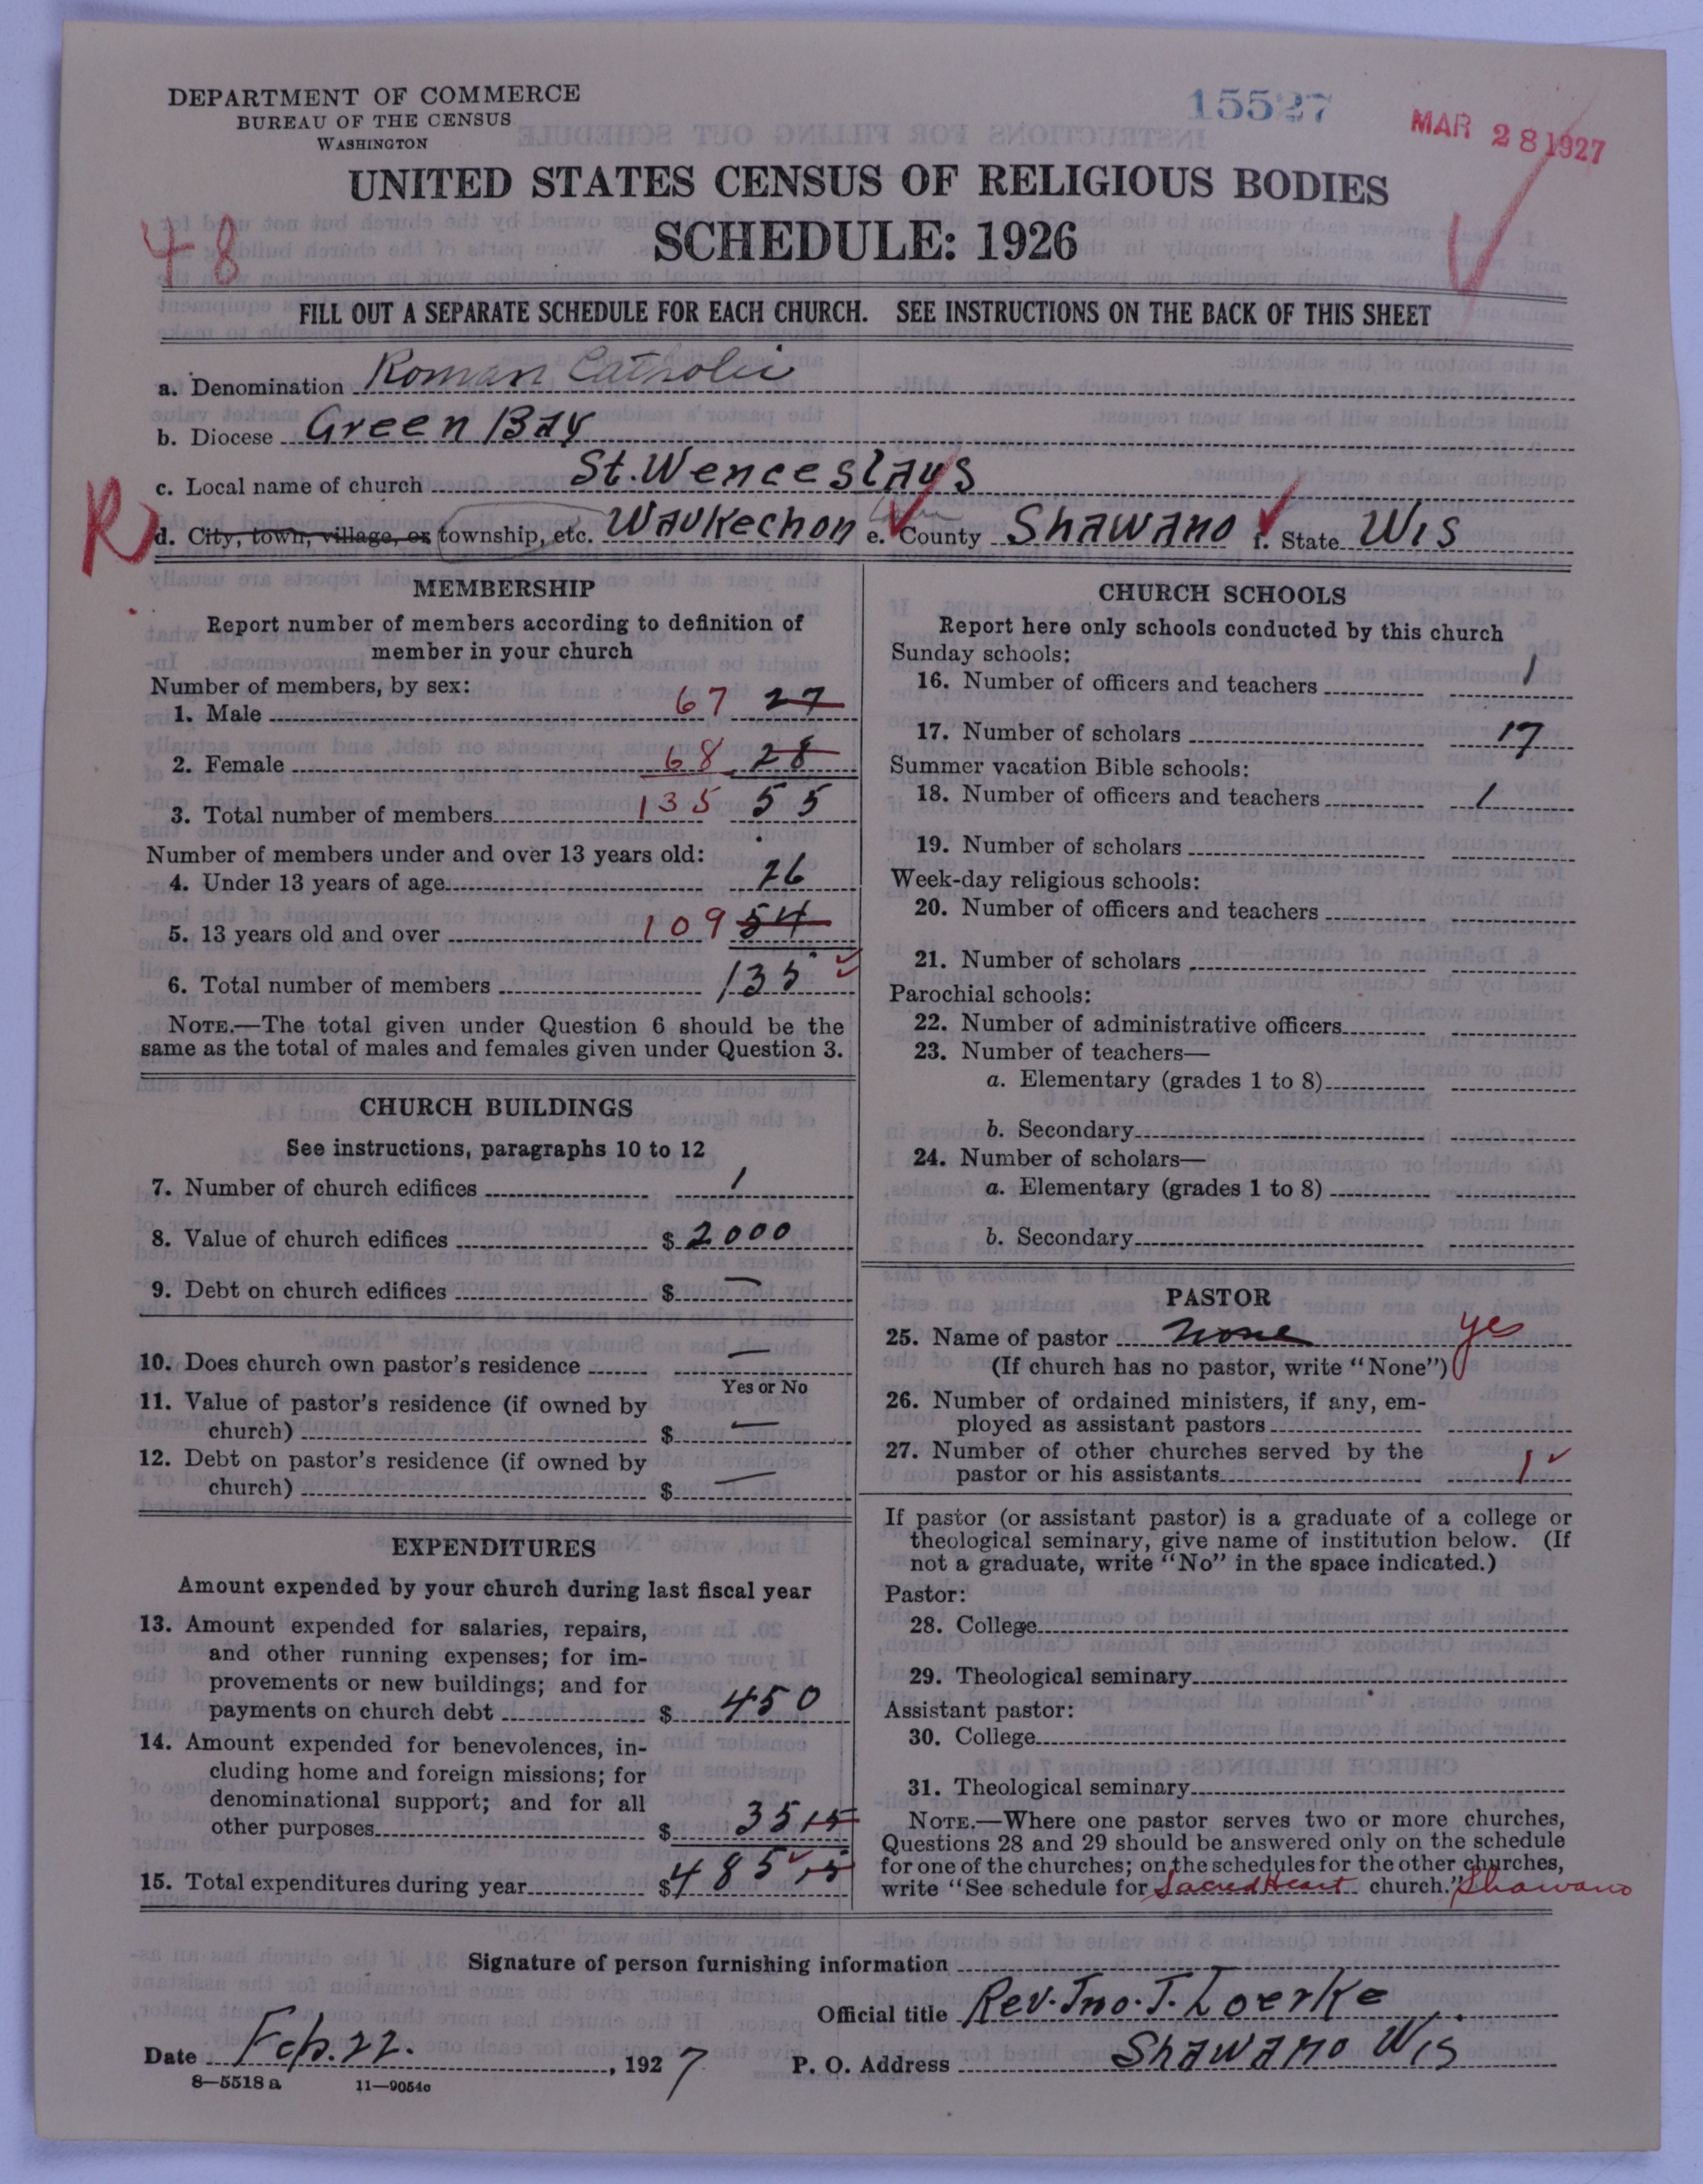 DEPARTMENT OF COMMERCE
BUREAU OF THE CENSUS
WASHINGTON
15527
MAR 28 1927
UNITED STATES CENSUS OF RELIGIOUS BODIES
SCHEDULE: 1926
48
FILL OUT A SEPARATE SCHEDULE FOR EACH CHURCH. SEE INSTRUCTIONS ON THE BACK OF THIS SHEET
a. Denomination Roman Catholic
b. Diocese Green Bay
c. Local name of church St. Wenceslaus
R d. City, town, village, or township, etc. Waukechon e. County Shawano f. State Wis
MEMBERSHIP
Report number of members according to definition of
member in your church
Number of members, by sex:
1. Male 67 27
2. Female 68 28
3. Total number of members 135 55
Number of members under and over 13 years old:
4. Under 13 years of age 26
5. 13 years old and over 109 54
6. Total number of members 135
NOTE.—The total given under Question 6 should be the
same as the total of males and females given under Question 3.
CHURCH BUILDINGS
See instructions, paragraphs 10 to 12
7. Number of church edifices 1
8. Value of church edifices $ 2000
9. Debt on church edifices $ —
10. Does church own pastor's residence —
Yes or No
11. Value of pastor's residence (if owned by
church) $ —
12. Debt on pastor's residence (if owned by
church) $ —
EXPENDITURES
Amount expended by your church during last fiscal year
13. Amount expended for salaries, repairs,
and other running expenses; for im-
provements or new buildings; and for
payments on church debt $ 450
14. Amount expended for benevolences, in-
cluding home and foreign missions; for
denominational support; and for all
other purposes $ 35 15
15. Total expenditures during year $ 485 15
CHURCH SCHOOLS
Report here only schools conducted by this church
Sunday schools:
16. Number of officers and teachers 1
17. Number of scholars 17
Summer vacation Bible schools:
18. Number of officers and teachers 1
19. Number of scholars
Week-day religious schools:
20. Number of officers and teachers
21. Number of scholars
Parochial schools:
22. Number of administrative officers
23. Number of teachers—
a. Elementary (grades 1 to 8)
b. Secondary
24. Number of scholars—
a. Elementary (grades 1 to 8)
b. Secondary
PASTOR
25. Name of pastor none yes
(If church has no pastor, write "None")
26. Number of ordained ministers, if any, em-
ployed as assistant pastors
27. Number of other churches served by the
pastor or his assistants 1
If pastor (or assistant pastor) is a graduate of a college or
theological seminary, give name of institution below. (If
not a graduate, write "No" in the space indicated.)
Pastor:
28. College
29. Theological seminary
Assistant pastor:
30. College
31. Theological seminary
NOTE.—Where one pastor serves two or more churches,
Questions 28 and 29 should be answered only on the schedule
for one of the churches; on the schedules for the other churches,
write "See schedule for Sacred Heart church." Shawano
Signature of person furnishing information
Official title Rev. Jno. J. Loerke
Date Feb. 22. , 1927 P. O. Address Shawano Wis
8—5518 a 11—9054c